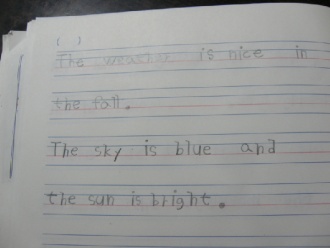 ( )
The weather is nice in
the fall.
The sky is blue and
the sun is bright.